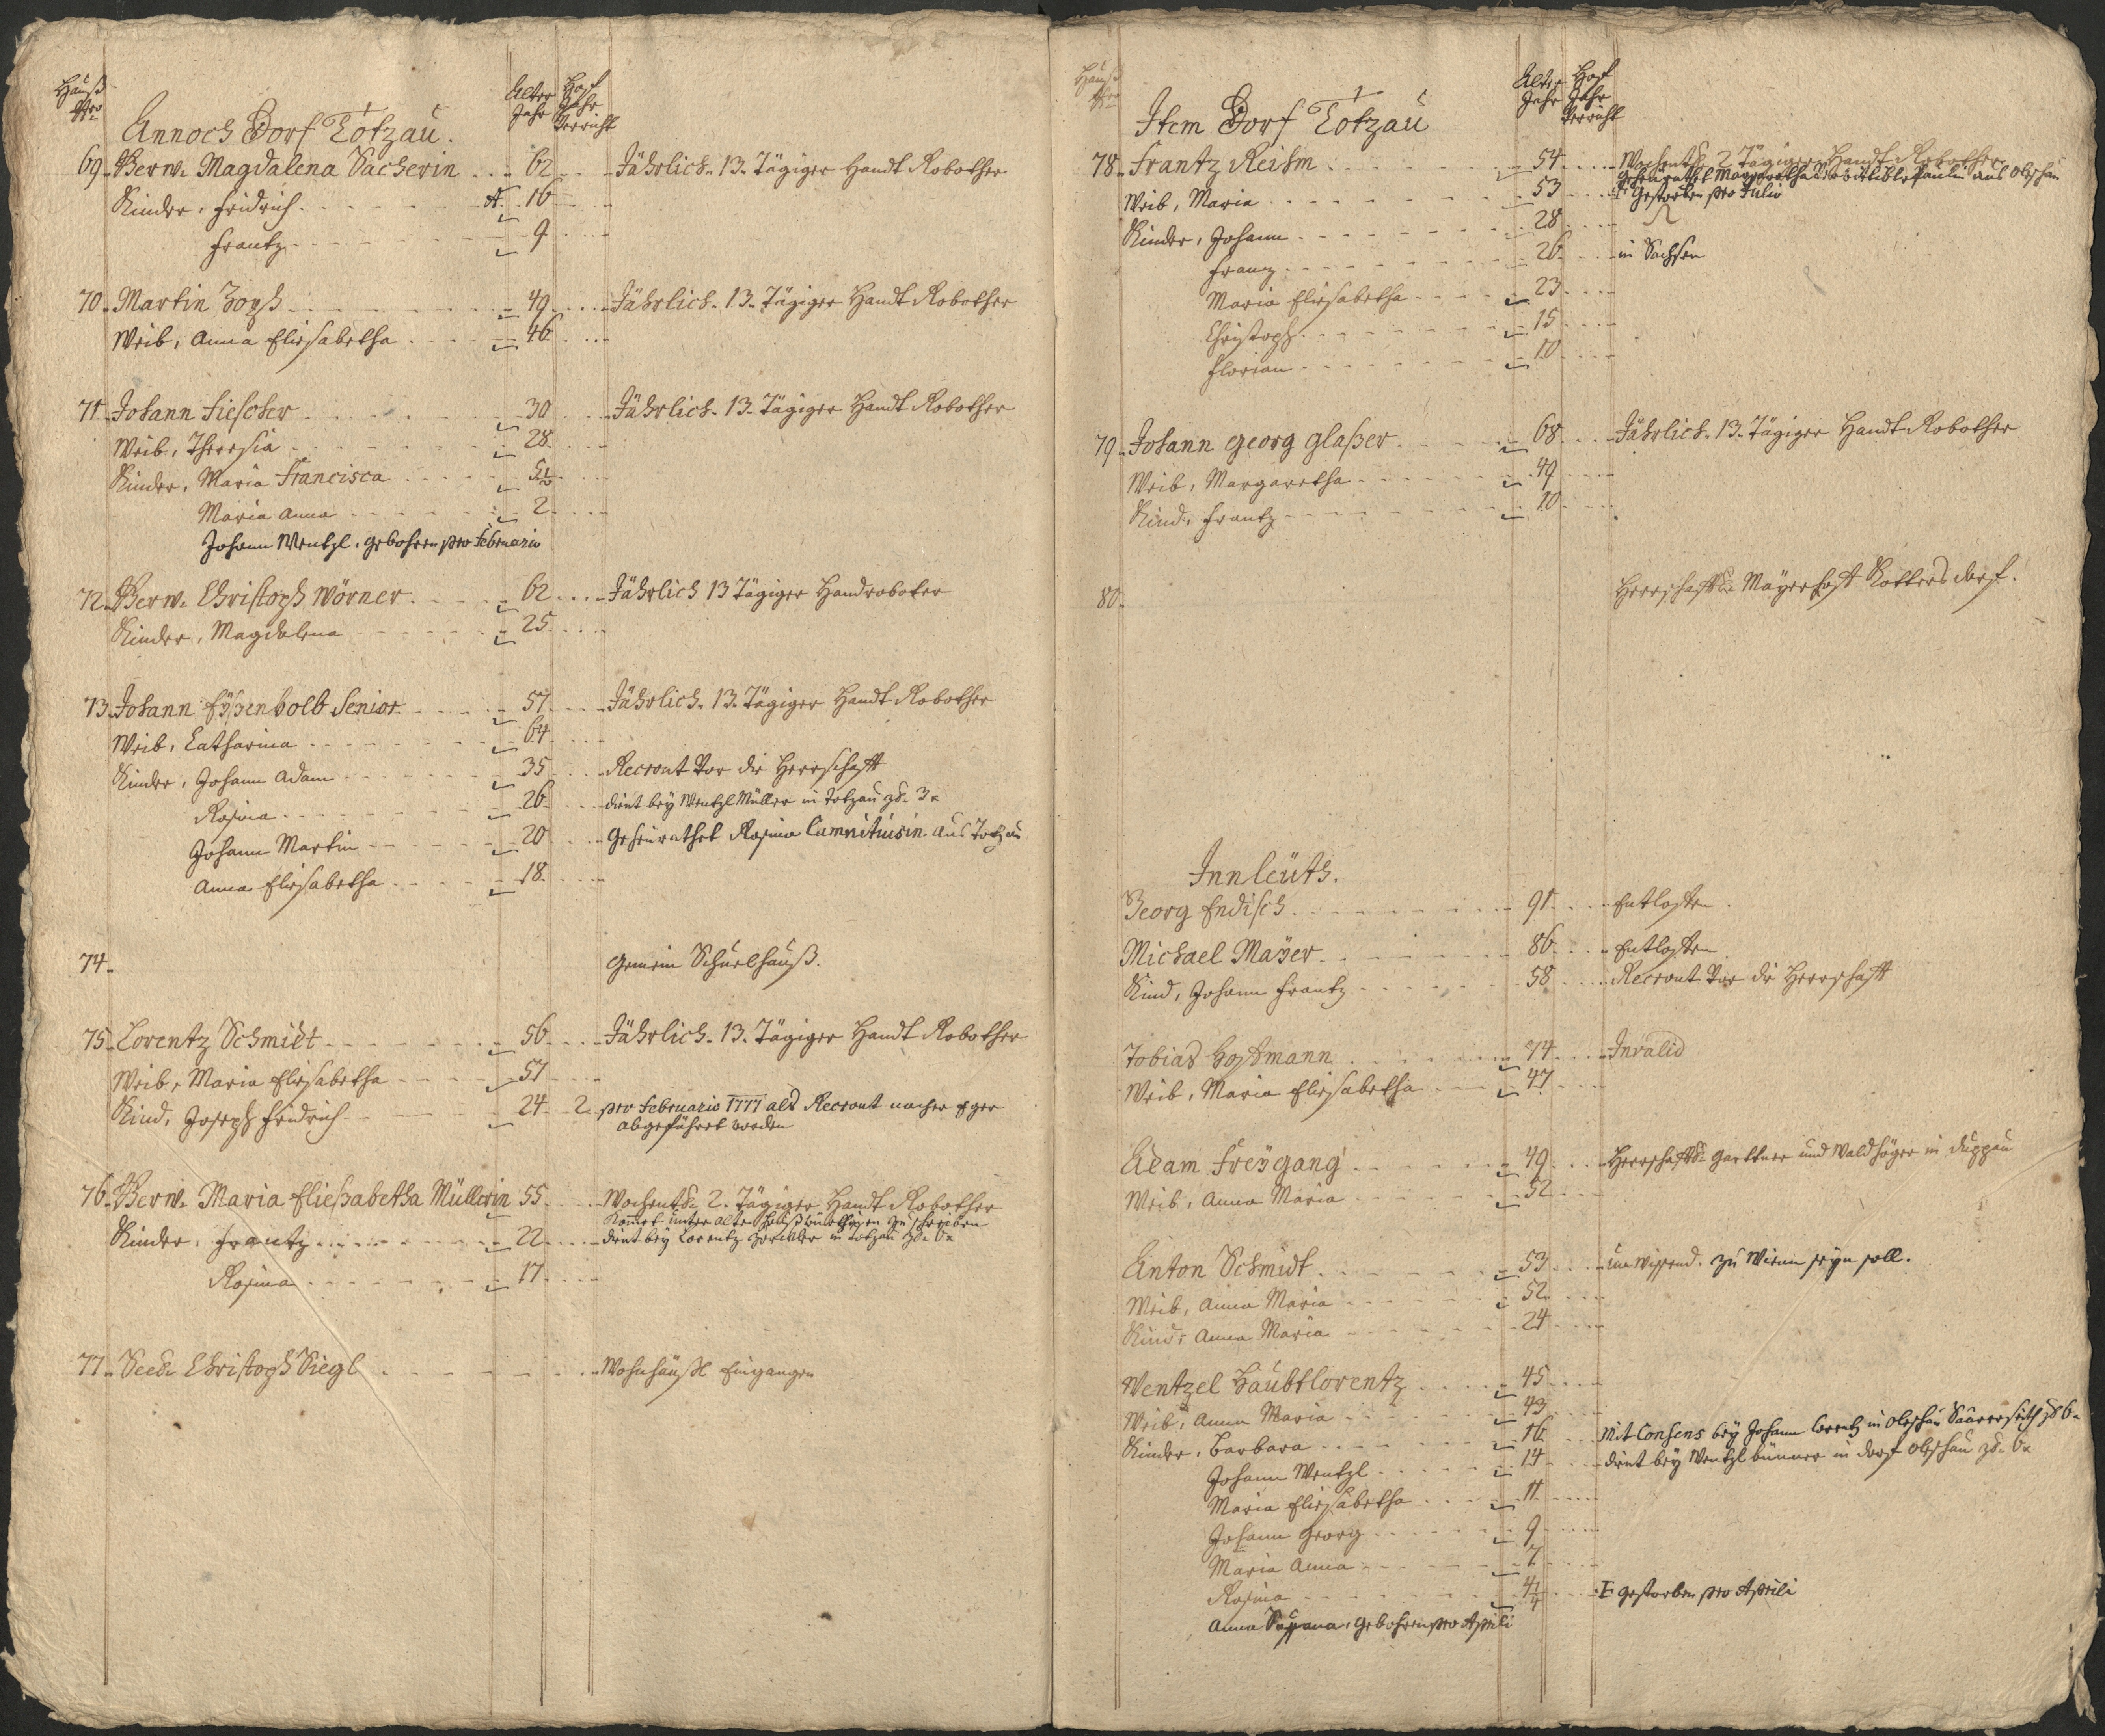 Hauß Nro
Alter Jahr
Hoff Jahr Verricht
Annoch Dorf Totzau.
69. Verw. Magdalena Sacherin 62 Jährlich. 13. Tägiger Handt Robother
Kinder, Fridrich 16
Frantz 9
70. Martin 49 Jährlich. 13. Tägiger Handt Robother
Weib, Anna Eliesabetha 46
71. Johann Fiescher 30 Jährlich. 13. Tägiger Handt Robother
Weib, Theresia 28
Kinder, Maria Francisca 5½
Maria Anna 2
Johann Wentzl, gebohren pro Februario
72. Verw. Christoph Wörner 62 Jährlich 13 Tägiger Handroboter
Kinder, Magdalena 25
73. Johann Eÿßenkolb Senior 57 Jährlich. 13. Tägiger Handt Robother
Weib, Catharina 64
Kinder, Johann Adam 35 Recrout Vor die Herrschafft
Rosina 26 dient bey Wentzl Müller in Totzau
Johann Martin 20 Geheurathet Rosina Cumnitiusin aus Totzau
Anna Eliesabetha 18
74. Gemein Schuelhauß.
75. Lorentz Schmidt 56 Jährlich. 13. Tägiger Handt Robother
Weib, Maria Eliesabetha 57
Kind, Joseph Fridrich 24 2 pro Februario 1777 als Recrout nacher Eger
abgeführet worden
76. Verw. Maria Eließabetha Müllerin 55 Wochentl. 2. Tägiger Handt Robother
Kinder, Frantz 22 dient bey Lorentz in Totzau
Rosina 17
77. Seel. Christoph Siegl Wohnhäußl Eingangen
Hauß Nro
Alter Jahr
Hoff Jahr Verricht
Item Dorf Totzau
78. Frantz Reihm 54 Wochentl. 2 Tägiger Handt Robother
Weib, Maria 53 gestorben pro Julio
Kinder, Johann 28
Franz 26 in Sachsen
Maria Eliesabetha 23
Christoph 15
Florian 10
79. Johann Georg Glaßer 68 Jährlich. 13. Tägiger Handt Robother
Weib, Margaretha 49
Kind, Frantz 10
80. Herrschafftl. Mayerhoff Kottersdorf.
Innleüth.
Georg Endisch 91 Entloffen
Michael Mayer 86 Entloffen
Kind, Johann Frantz 58 Recrout Vor die Herrschafft
Tobias Hoffmann 74 Invalid
Weib, Maria Eliesabetha 47
Adam Freÿgang 49 Herrschafftl. Garttner und Waldhöger in Duppau
Weib, Anna Maria 52
Anton Schmidt 53 unwissend. zu Wienn seyn soll.
Weib, Anna Maria 52
Kind, Anna Maria 24
Wentzel Haubtlorentz 45
Weib, Anna Maria 43
Kinder, Barbara 16 Mit Consens bey Johann Lorentz in
Johann Wentzl 14 dient bey Wentzl in Dorf
Maria Eliesabetha 11
Johann Georg 9
Maria Anna 7
Rosina 4¼ gestorben pro Aprili
Anna gebohren pro Aprili